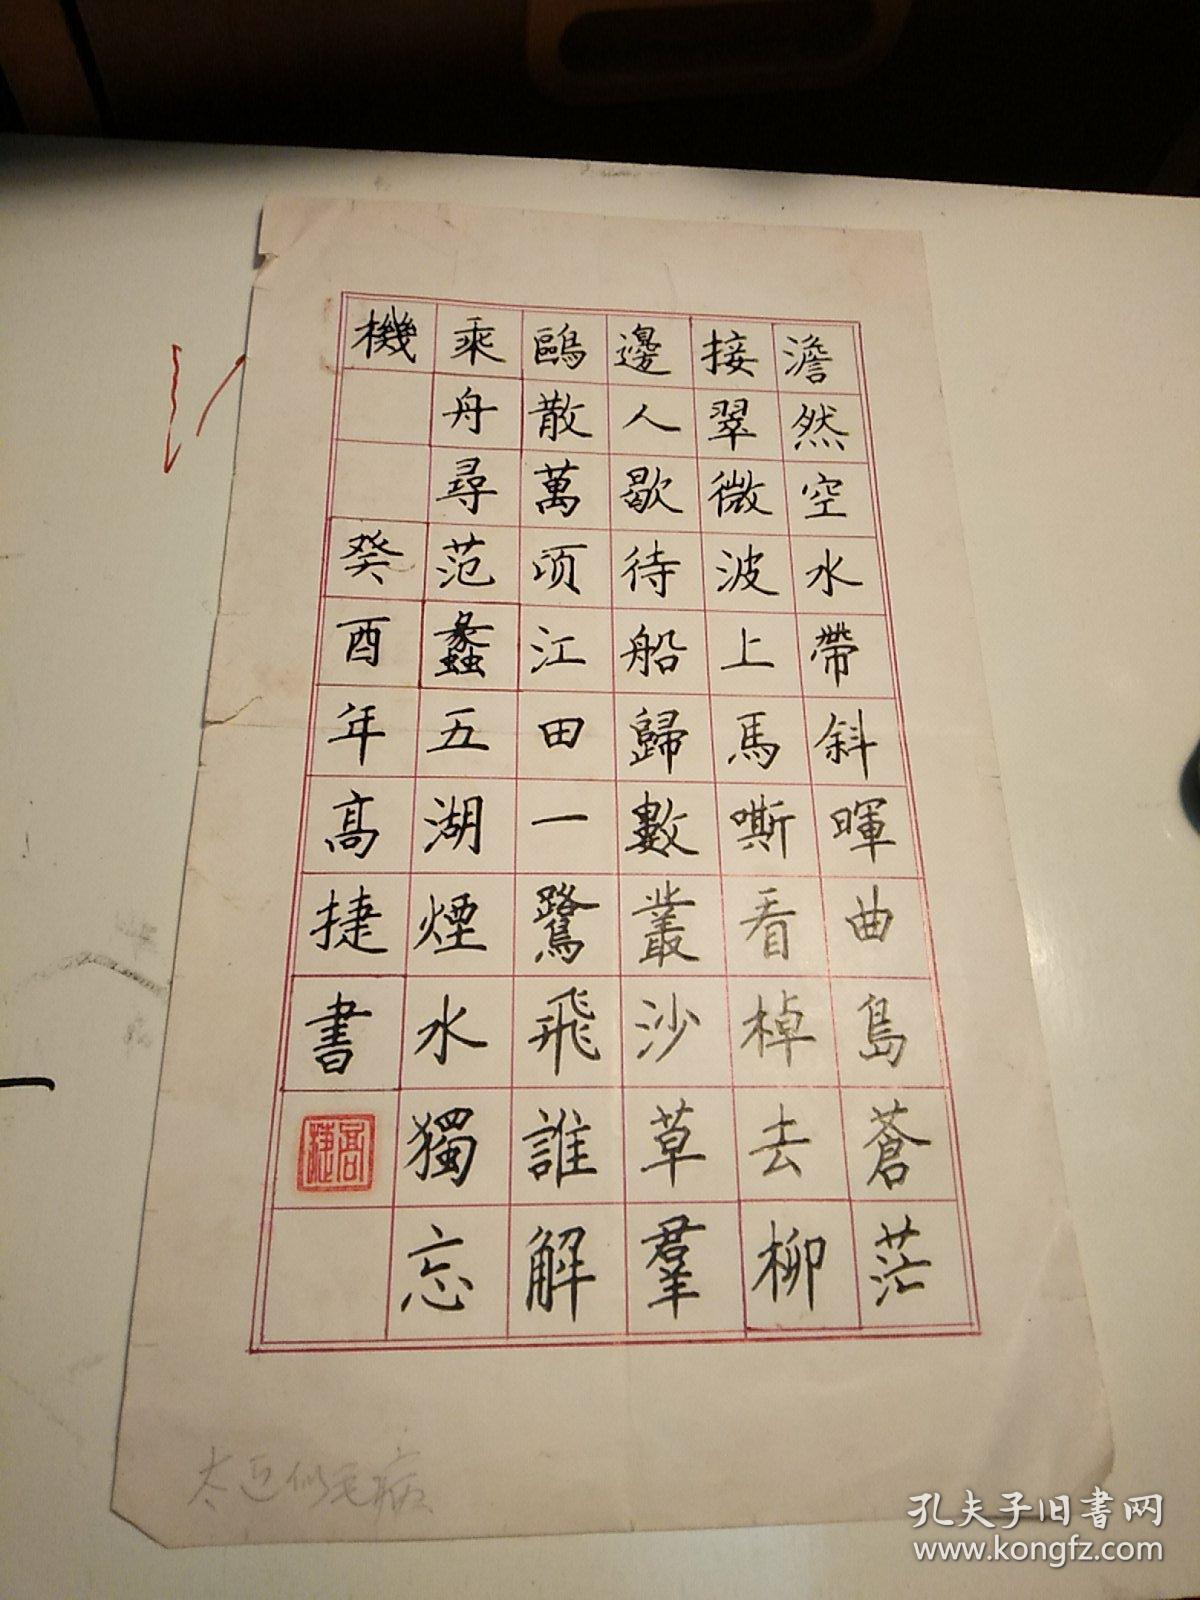 澹然空水帶斜暉曲島蒼茫
接翠微波上馬嘶看棹去柳
邊人歇待船歸數叢沙草羣
鷗散萬顷江田一鷺飛誰解
乘舟尋范蠡五湖煙水獨忘
機
癸酉年高捷書
高捷
孔夫子旧书网
www.kongfz.com